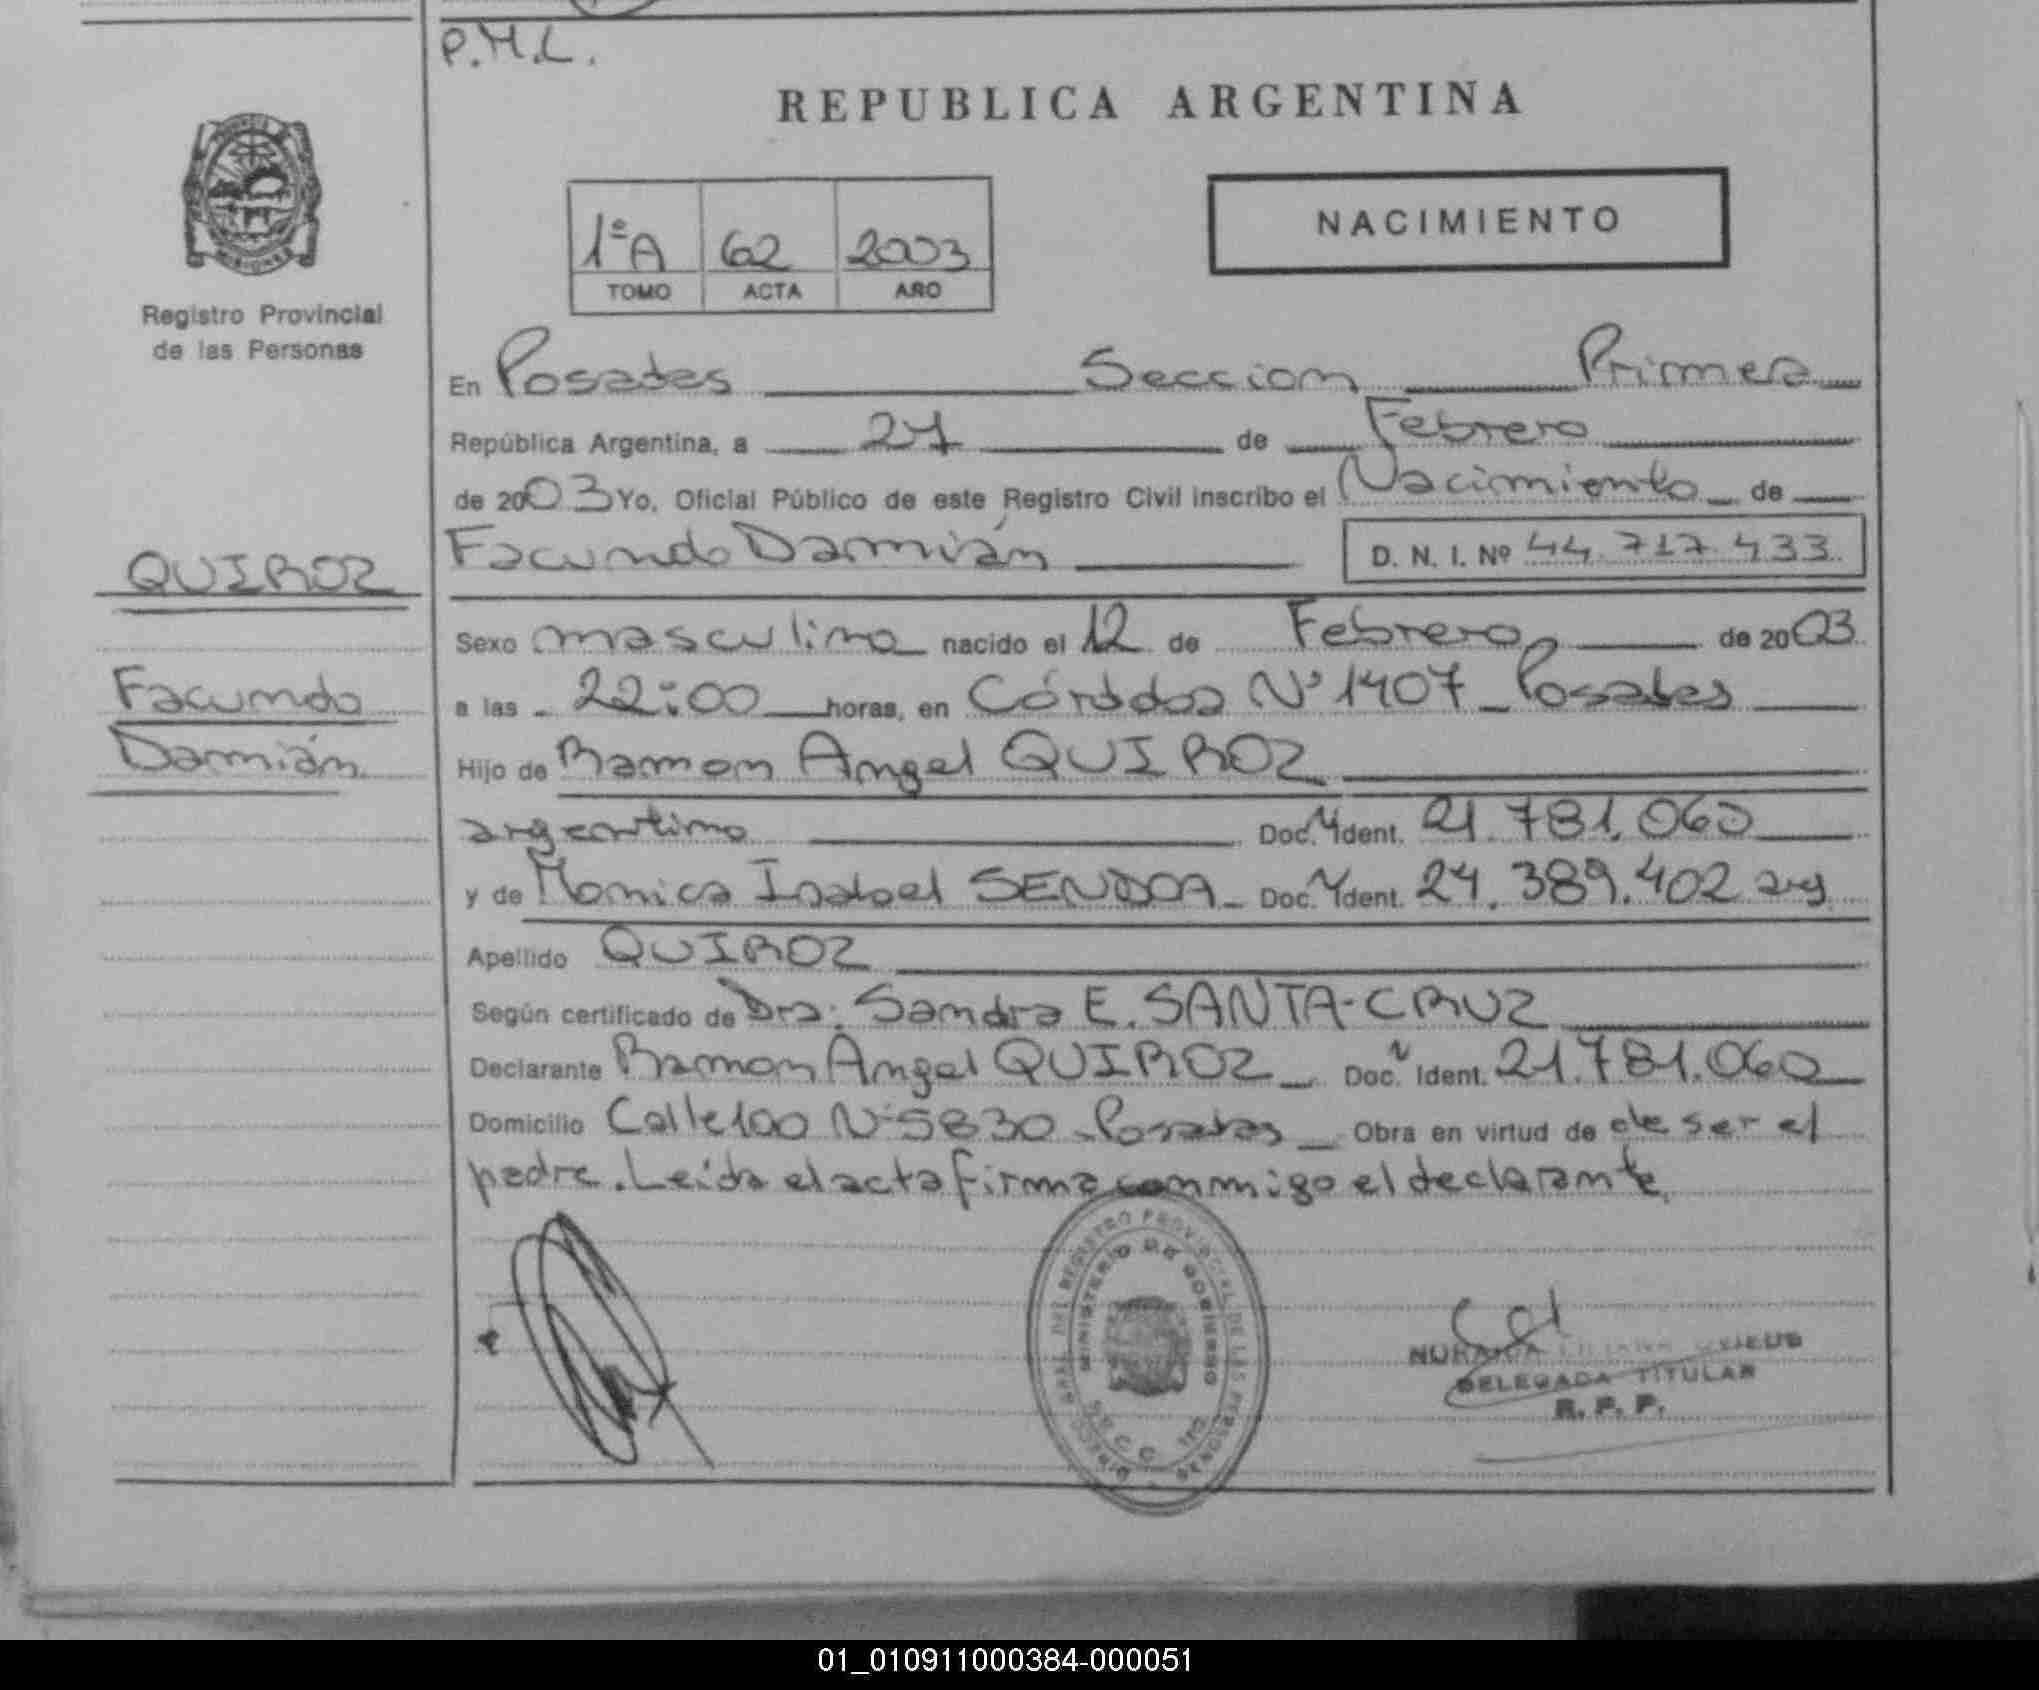 P.M.L.
REPUBLICA ARGENTINA
1ºA 62 2003
TOMO ACTA AÑO
NACIMIENTO
MISIONES
Registro Provincial
de las Personas
En Posadas Seccion Primera
República Argentina, a 27 de Febrero
de 2003 Yo, Oficial Público de este Registro Civil inscribo el Nacimiento de
QUIROZ
Facundo Damián D. N. I. Nº 44.717.433
Sexo masculino nacido el 12 de Febrero de 2003
Facundo
a las 22:00 horas, en Córdoba Nº 1407 Posadas
Damián
Hijo de Ramon Angel QUIROZ
argentino Doc. Ident. 21.781.060
y de Monica Isabel SENDOA Doc. Ident. 24.389.402 arg
Apellido QUIROZ
Según certificado de Dra: Sandra E. SANTA-CRUZ
Declarante Ramon Angel QUIROZ Doc. Ident. 21.781.060
Domicilio Calle 100 Nº 5830 Posadas Obra en virtud de de ser el
padre. Leída el acta firma conmigo el declarante.
REGISTRO PROVINCIAL DE LAS PERSONAS
MINISTERIO DE GOBIERNO
DELEGADA TITULAR
R. P. P.
01_010911000384-000051